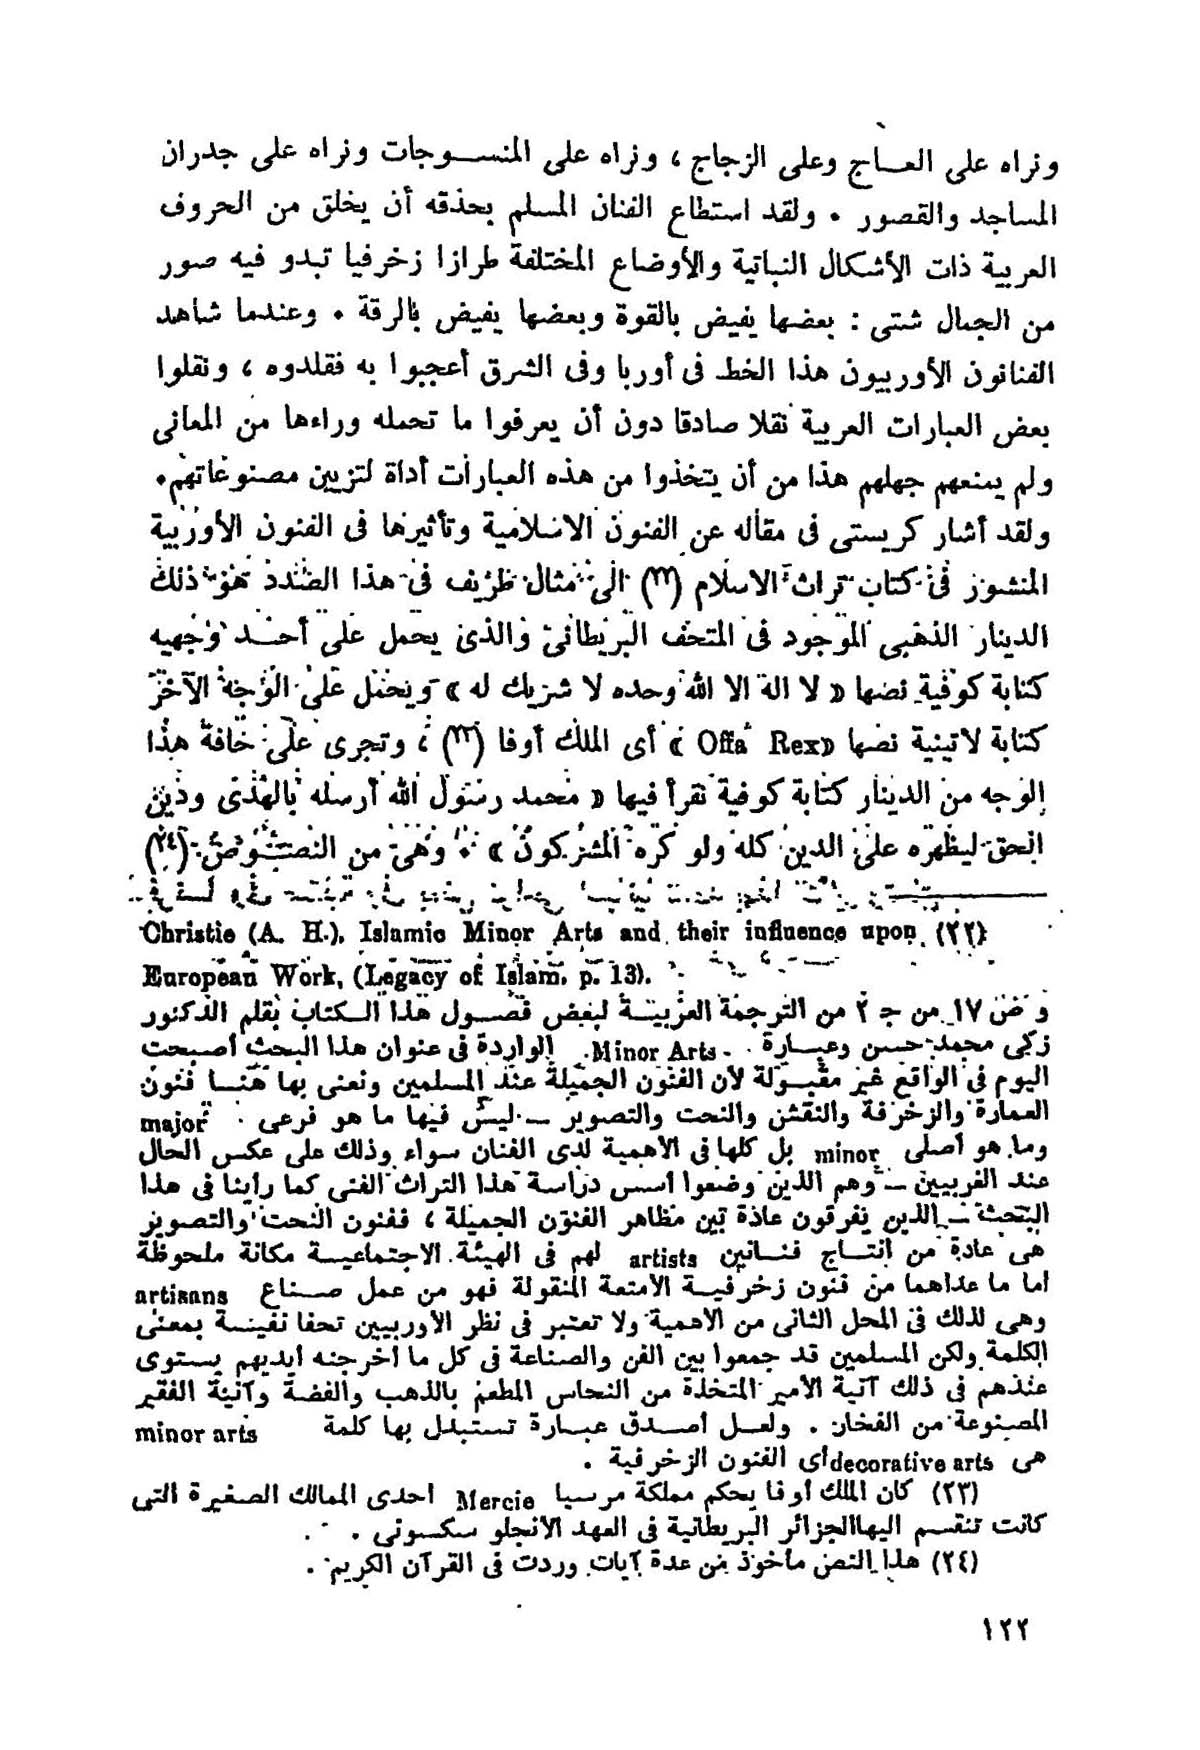 ونراه على العـاج وعلى الزجاج ، ونراه على المنسـوجات ونراه على جدران
المساجد والقصور . ولقد استطاع الفنان المسلم بحذقه أن يخلق من الحروف
العربية ذات الأشكال النباتية والأوضاع المختلفة طرازا زخرفيا تبدو فيه صور
من الجمال شتى : بعضها يفيض بالقوة وبعضها يفيض بالرقة . وعندما شاهد
الفنانون الأوربيون هذا الخط فى أوربا وفى الشرق أعجبوا به فقلدوه ، ونقلوا
بعض العبارات العربية نقلا صادقا دون أن يعرفوا ما تحمله وراءها من المعانى
ولم يمنعهم جهلهم هذا من أن يتخذوا من هذه العبارات أداة لتزيين مصنوعاتهم.
ولقد أشار كريستى فى مقاله عن الفنون الاسلامية وتأثيرها فى الفنون الأوربية
المنشور فى كتاب تراث الاسلام (٢٢) الى مثال طريف فى هذا الصدد هو ذلك
الدينار الذهبى الموجود فى المتحف البريطانى والذى يحمل على أحـد وجهيه
كتابة كوفية نصها « لا اله الا الله وحده لا شريك له » ويحمل على الوجه الآخر
كتابة لاتينية نصها «Offa Rex » أى الملك أوفا (٢٣) ، وتجرى على حافة هذا
الوجه من الدينار كتابة كوفية تقرأ فيها « محمد رسول الله أرسله بالهدى ودين
الحق ليظهره على الدين كله ولو كره المشركون » . وهى من النصـوص (٢٤)
(٢٢) Christie (A. H.), Islamic Minor Arts and their influence upon
European Work, (Legacy of Islam, p. 13).
و ص ١٧ من ج ٢ من الترجمة العربيـة لبعض فصـول هذا الـكتاب بقلم الدكتور
زكى محمد حسن وعبـارة Minor Arts الواردة فى عنوان هذا البحث أصـبحت
اليوم فى الواقع غير مقبـولة لأن الفنون الجميلة عند المسلمين ونعنى بها هنـا فنون
العمارة والزخرفة والنقش والنحت والتصوير – ليس فيها ما هو فرعى major
وما هو أصلى minor بل كلها فى الأهمية لدى الفنان سواء وذلك على عكس الحال
عند الغربيين – وهم الذين وضعوا أسس دراسة هذا التراث الفنى كما رأينا فى هذا
البحث – الذين يفرقون عادة بين مظاهر الفنون الجميلة ، ففنون النحت والتصوير
هى عادة من انتـاج فنـانين artists لهم فى الهيئة الاجتماعيـة مكانة ملحوظة
أما ما عداهما من فنون زخرفيـة الأمتعة المنقولة فهو من عمل صـناع artisans
وهى لذلك فى المحل الثانى من الأهمية ولا تعتبر فى نظر الأوربيين تحفا نفيسة بمعنى
الكلمة ولكن المسلمين قد جمعوا بين الفن والصناعة فى كل ما أخرجته أيديهم يستوى
عندهم فى ذلك آنية الأمير المتخذة من النحاس المطعم بالذهب والفضة وآنية الفقير
المصنوعة من الفخار . ولعـل أصـدق عبـارة تستبدل بها كلمة minor arts
هى decorative arts أى الفنون الزخرفية .
(٢٣) كان الملك أوفا يحكم مملكة مرسيا Mercie احدى الممالك الصغيرة التى
كانت تنقسم اليها الجزائر البريطانية فى العهد الانجلو سكسونى .
(٢٤) هذا النص مأخوذ من عدة آيات وردت فى القرآن الكريم .
١٢٢